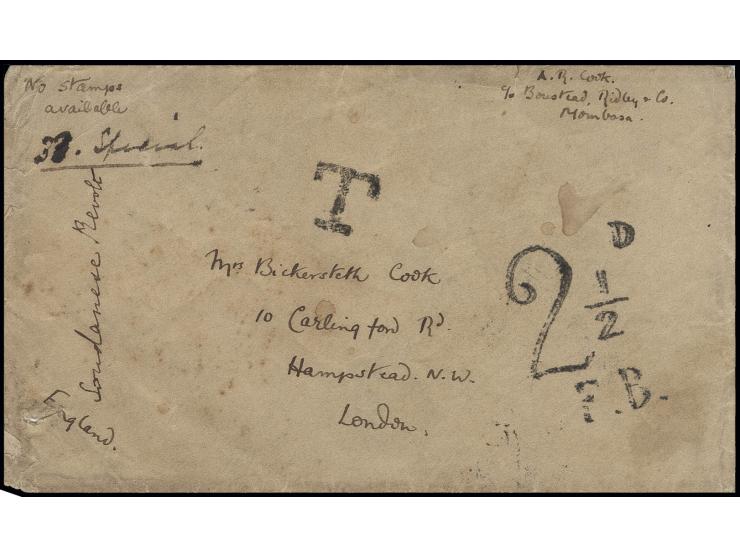 No stamps
available
Special.
A. R. Cook.
c/o Boustead, Ridley & Co.
Mombasa.
T
Soudanese Revolt
Mrs Bickersteth Cook
10 Carlingford Rd.
Hampstead. N.W.
London.
England.
2 1/2 D
F.B.